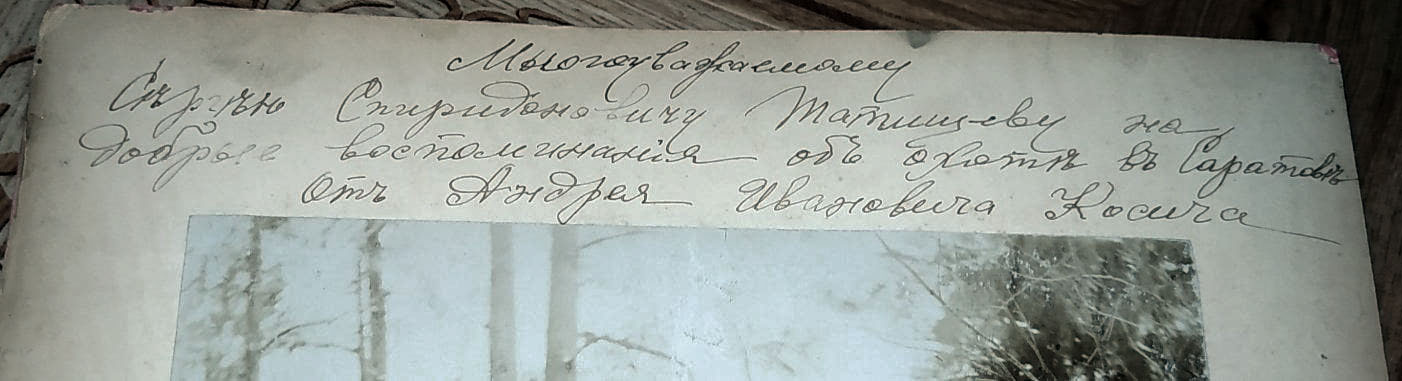 Многоуважаемому
Сѣргѣю Спиридоновичу Татищеву на
добрыя воспоминанія объ охотѣ въ Саратовѣ
Отъ Андрея Ивановича Косича